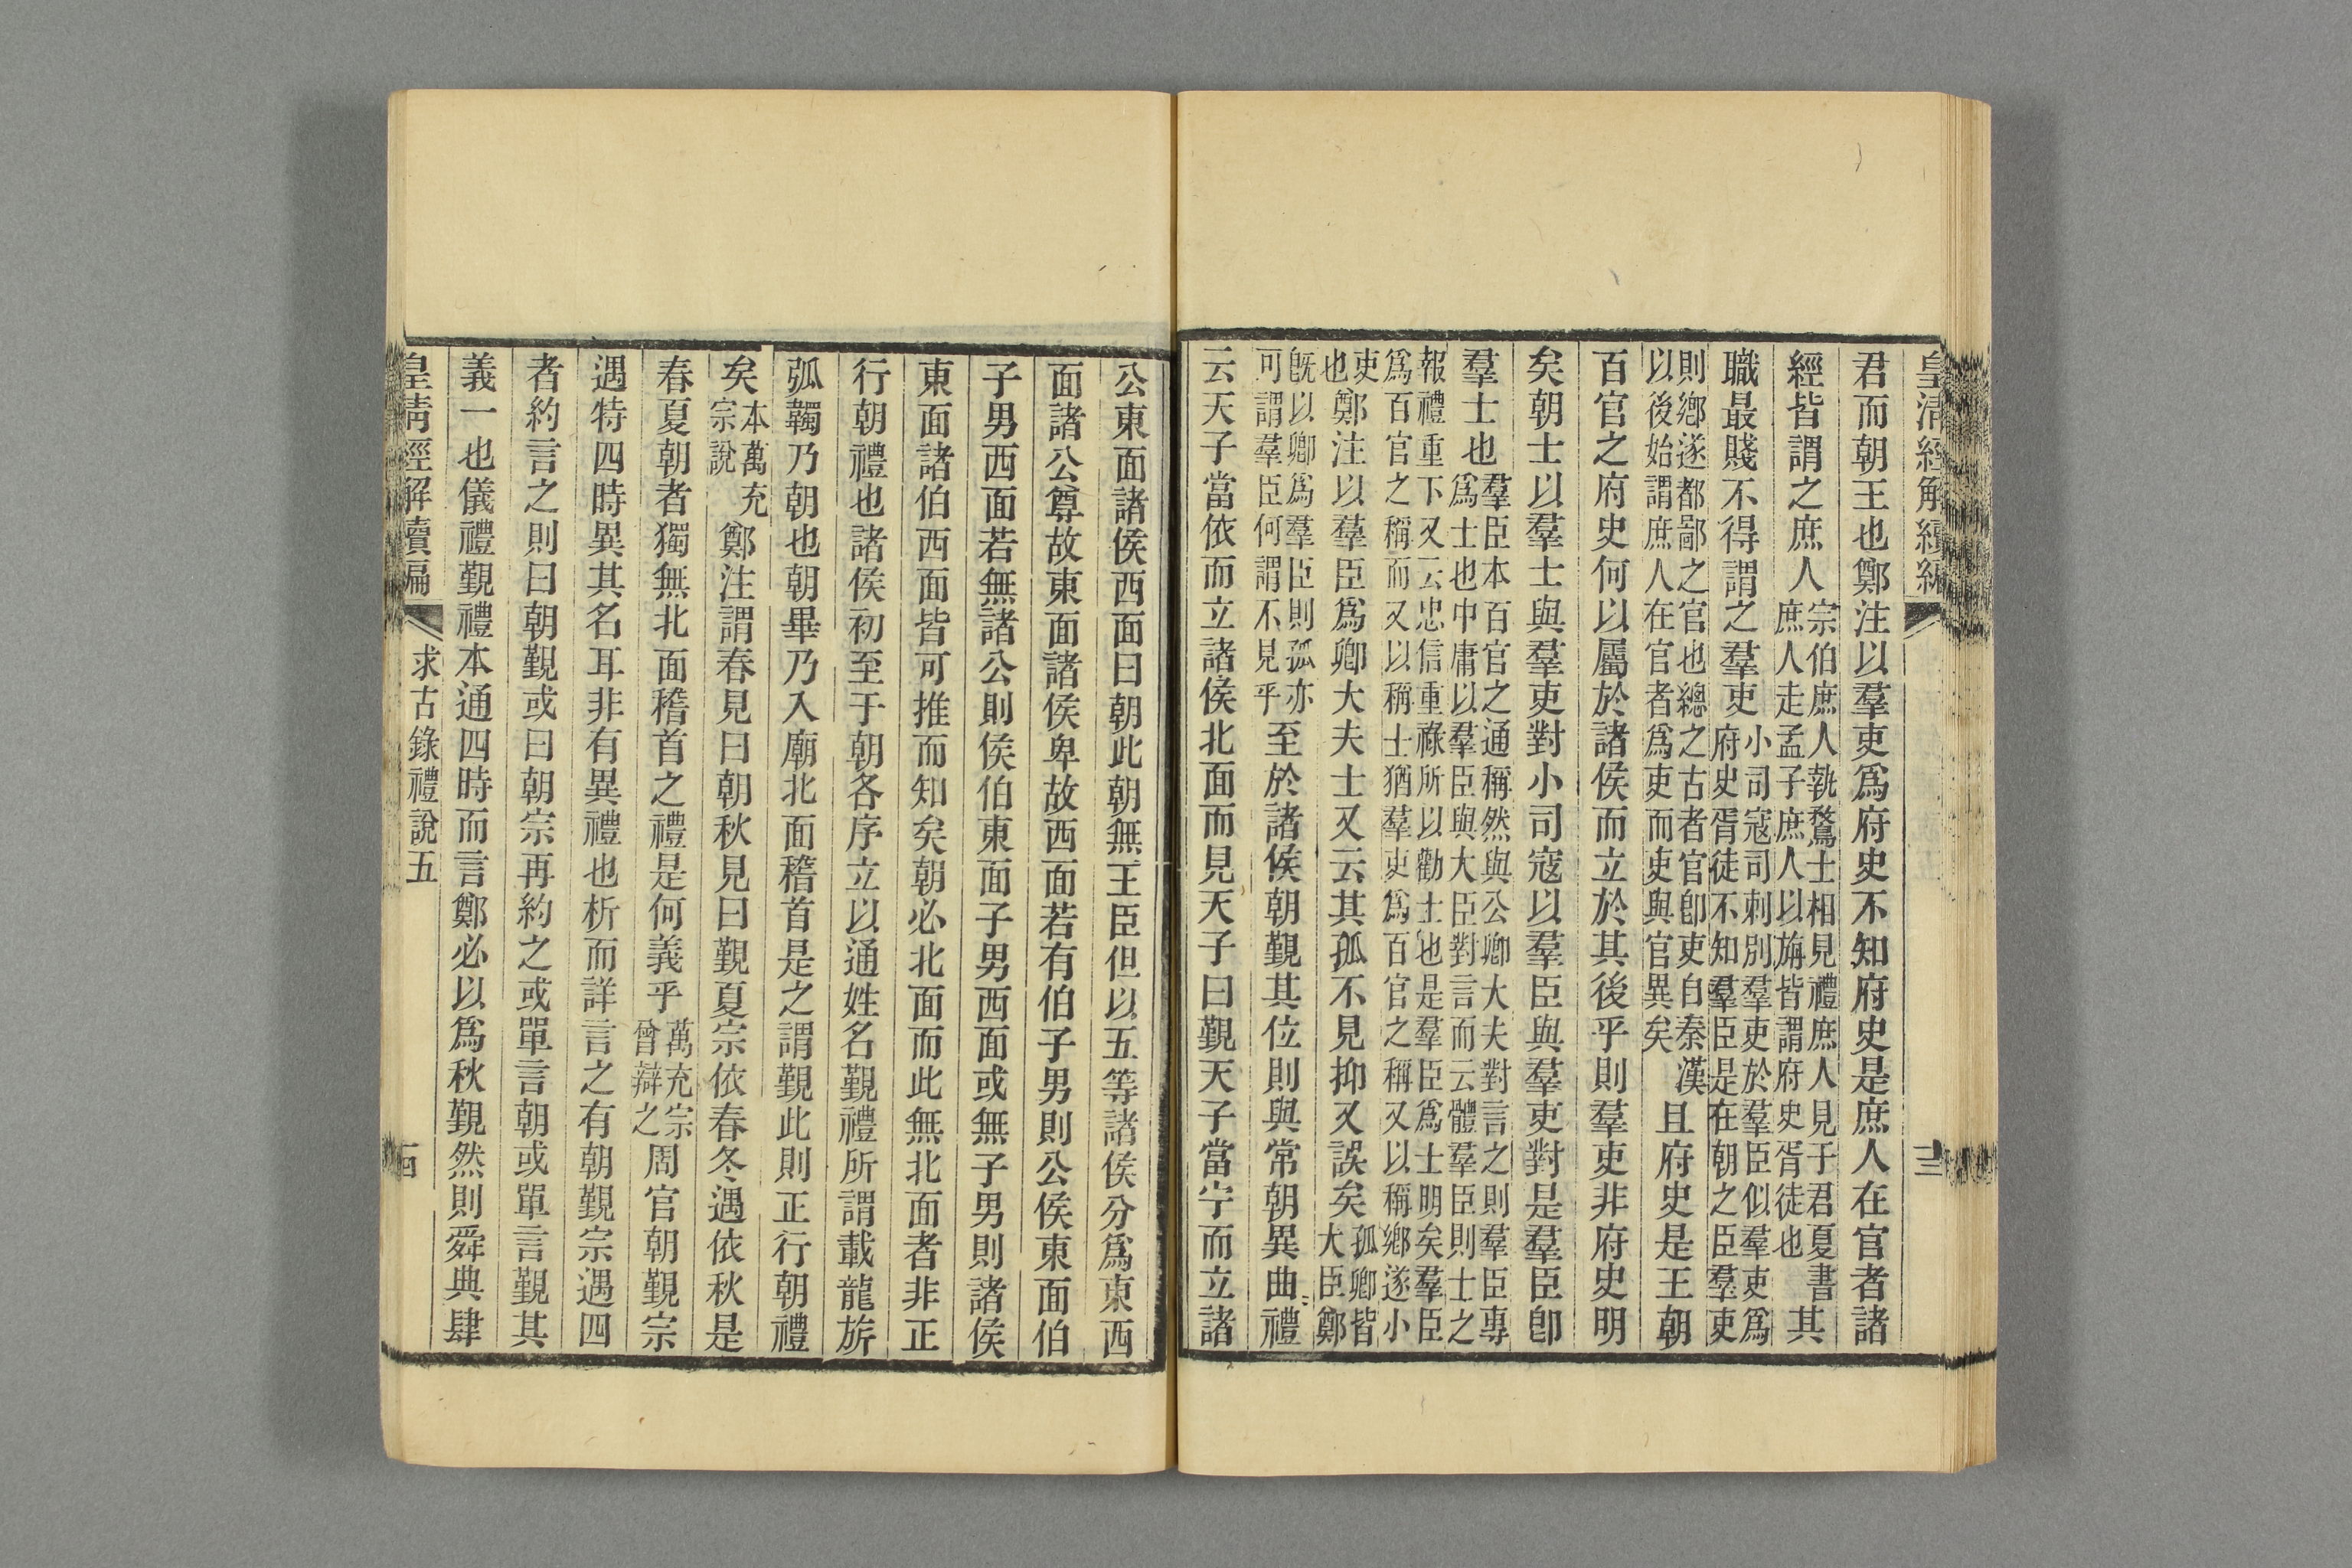 皇清經解續編
十三
君而朝王也鄭注以羣吏爲府史不知府史是庶人在官者諸
經皆謂之庶人宗伯庶人執鶩士相見禮庶人見于君夏書庶人走孟子庶人以旃皆謂府史胥徒也其
職最賤不得謂之羣吏小司寇司刺別羣吏於羣臣似羣吏爲府史胥徒不知羣臣是在朝之臣羣吏
則鄉遂都鄙之官也總之古者官卽吏自秦漢以後始謂庶人在官者爲吏而吏與官異矣且府史是王朝
百官之府史何以屬於諸侯而立於其後乎則羣吏非府史明
矣朝士以羣士與羣吏對小司寇以羣臣與羣吏對是羣臣卽
羣士也羣臣本百官之通稱然與公卿大夫對言之則羣臣專爲士也中庸以羣臣與大臣對言而云體羣臣則士之
報禮重下又云忠信重祿所以勸士也是羣臣爲士明矣羣臣爲百官之稱而又以稱士猶羣吏爲百官之稱又以稱鄉遂小
吏也鄭注以羣臣爲卿大夫士又云其孤不見抑又誤矣孤卿皆大臣鄭
旣以卿爲羣臣則孤亦可謂羣臣何謂不見乎至於諸侯朝覲其位則與常朝異曲禮
云天子當依而立諸侯北面而見天子曰覲天子當宁而立諸
公東面諸侯西面曰朝此朝無王臣但以五等諸侯分爲東西
面諸公尊故東面諸侯卑故西面若有伯子男則公侯東面伯
子男西面若無諸公則侯伯東面子男西面或無子男則諸侯
東面諸伯西面皆可推而知矣朝必北面而此無北面者非正
行朝禮也諸侯初至于朝各序立以通姓名覲禮所謂載龍旂
弧韣乃朝也朝畢乃入廟北面稽首是之謂覲此則正行朝禮
矣本萬充宗說鄭注謂春見曰朝秋見曰覲夏宗依春冬遇依秋是
春夏朝者獨無北面稽首之禮是何義乎萬充宗曾辯之周官朝覲宗
遇特四時異其名耳非有異禮也析而詳言之有朝覲宗遇四
者約言之則曰朝覲或曰朝宗再約之或單言朝或單言覲其
義一也儀禮覲禮本通四時而言鄭必以爲秋覲然則舜典肆
皇清經解續編
求古錄禮說五
十四